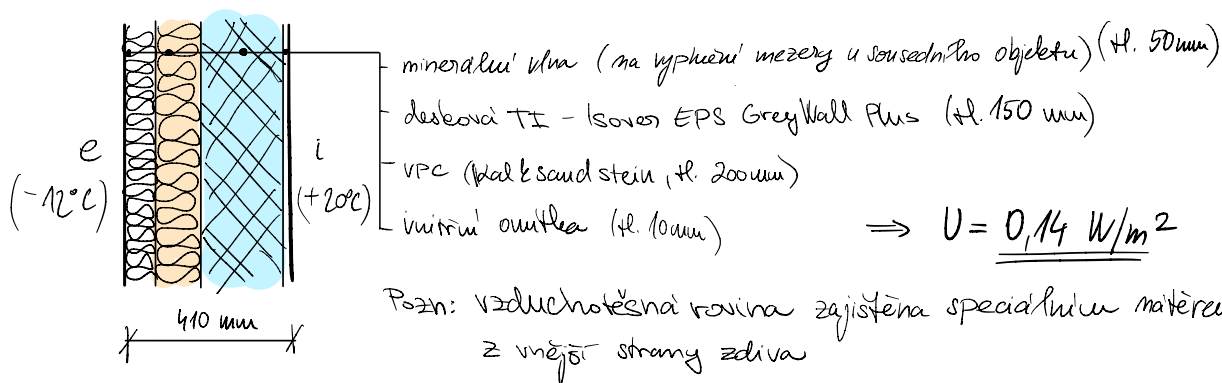 minerální vlna (na vyplnění mezery u sousedního objektu) (tl. 50mm)
desková TI - Isover EPS GreyWall Plus (tl. 150 mm)
e
i
VPC (Kalksandstein, tl. 200mm)
(-12°C)
(+20°C)
vnitřní omítka (tl. 10mm)
⇒ U = 0,14 W/m²
Pozn: vzduchotěsná rovina zajištěna speciálním nátěrem
410 mm
z vnější strany zdiva